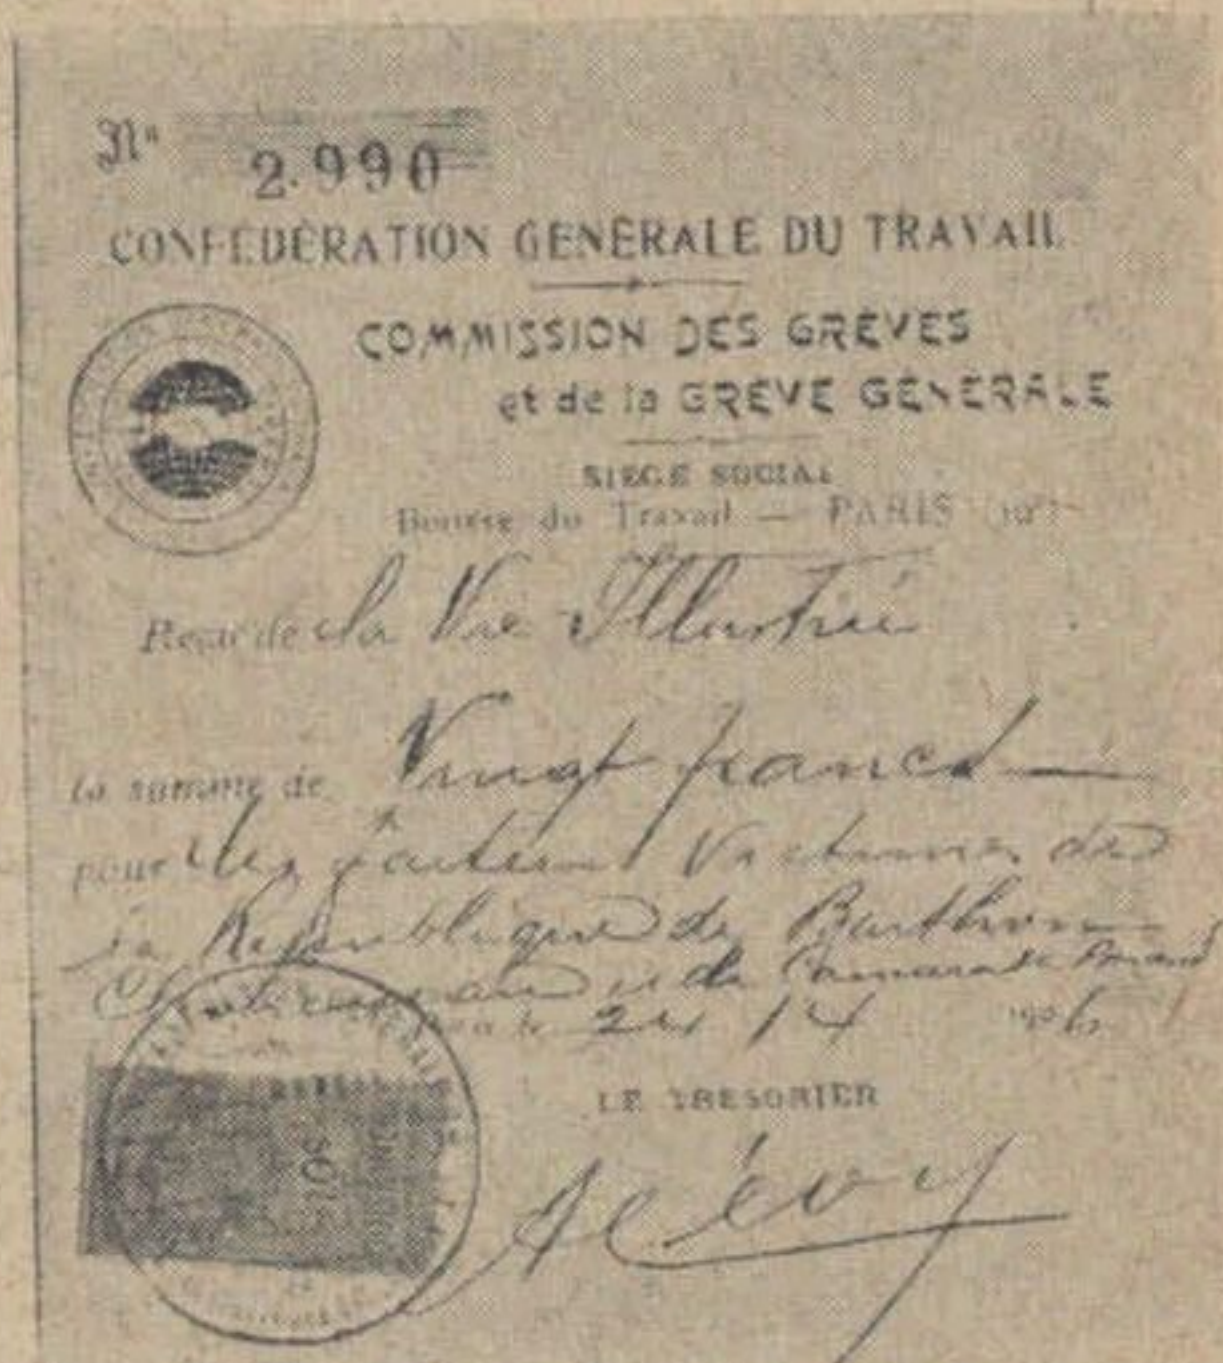 N° 2.990
CONFÉDÉRATION GÉNÉRALE DU TRAVAIL
COMMISSION DES GRÈVES
et de la GRÈVE GÉNÉRALE
SIÈGE SOCIAL
Bourse du Travail — PARIS
Reçu de la Vie Illustrée
la somme de Vingt francs
pour les Victimes de
la République de Barthou
Clemenceau
LE TRÉSORIER
A Lévy